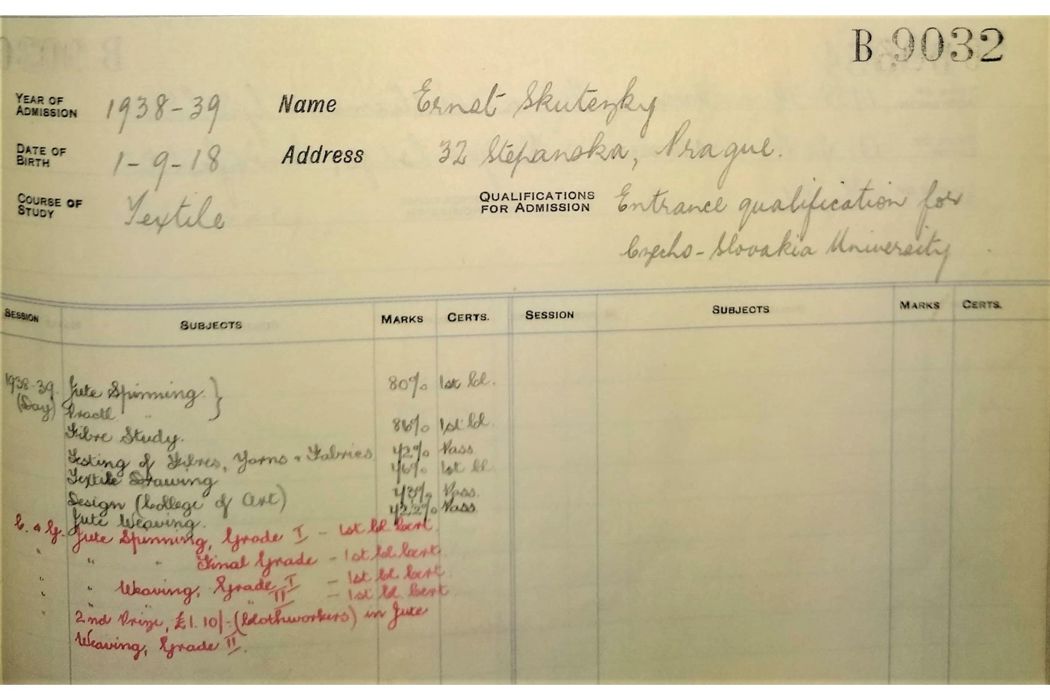 B 9032
YEAR OF ADMISSION 1938-39 Name Ernst Skutezky
DATE OF BIRTH 1-9-18 Address 32 Stepanska, Prague.
COURSE OF STUDY Textile QUALIFICATIONS FOR ADMISSION Entrance qualification for
Czecho-Slovakia University
SESSION SUBJECTS MARKS CERTS. SESSION SUBJECTS MARKS CERTS.
1938-39 Jute Spinning } 80% 1st Cl.
(Day) Practl "
Fibre Study. 86% 1st Cl.
Testing of Fibres, Yarns + Fabrics Pass
Textile Drawing 1st Cl
Design (College of Art) Pass.
Jute Weaving. Pass.
C. & G. Jute Spinning, Grade I - 1st Cl Cert.
" " " Final Grade - 1st Cl Cert.
" " Weaving, Grade I - 1st Cl Cert.
" " II - 1st Cl Cert
" 2nd Prize, £1.10/- (Clothworkers) in Jute
Weaving, Grade II.